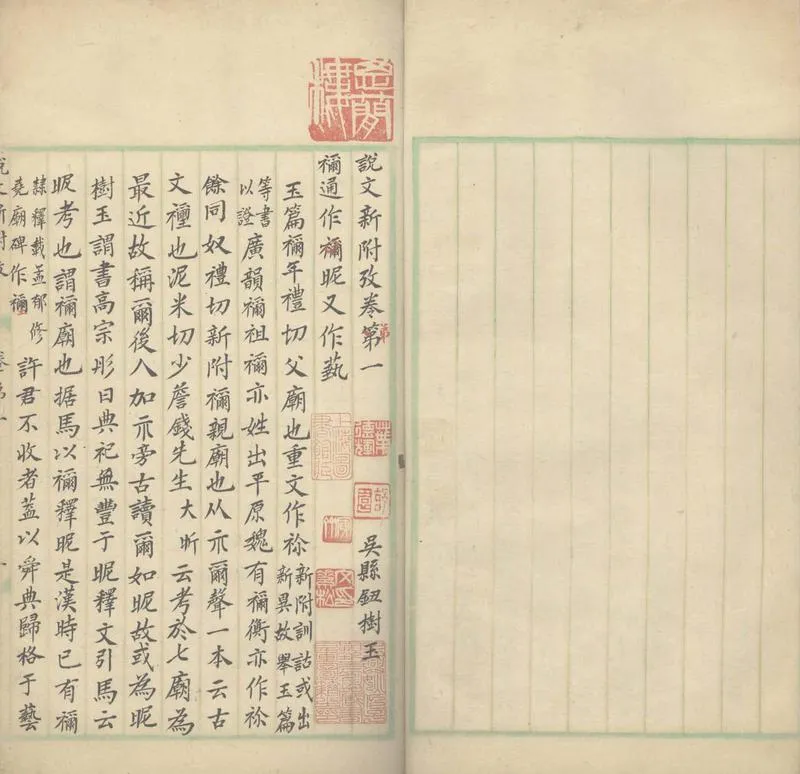 說文新附攷卷第一
吳縣鈕樹玉
禰通作禰昵又作藝
玉篇禰年禮切父廟也重文作祢新附訓詁或出新異故舉玉篇
等書以證廣韻禰祖禰亦姓出平原魏有禰衡亦作祢
餘同奴禮切新附禰親廟也从示爾聲一本云古
文禋也泥米切少詹錢先生大昕云考於七廟為
最近故稱爾後人加示旁古讀爾如昵故或為昵
樹玉謂書高宗肜日典祀無豐于昵釋文引馬云
昵考也謂禰廟也据馬以禰釋昵是漢時已有禰
隸釋載孟郁修堯廟碑作禰許君不收者蓋以舜典歸格于藝
說文新附攷
卷第一